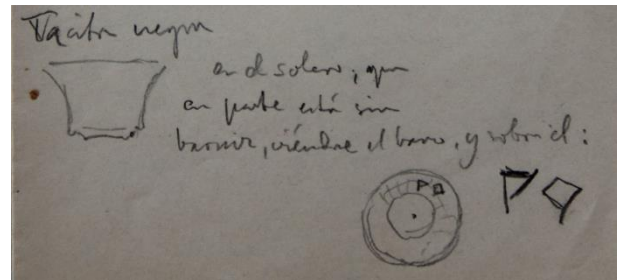 Tacita negra
en el solero, que
en parte está sin
barniz, viéndose el barro, y sobre él: